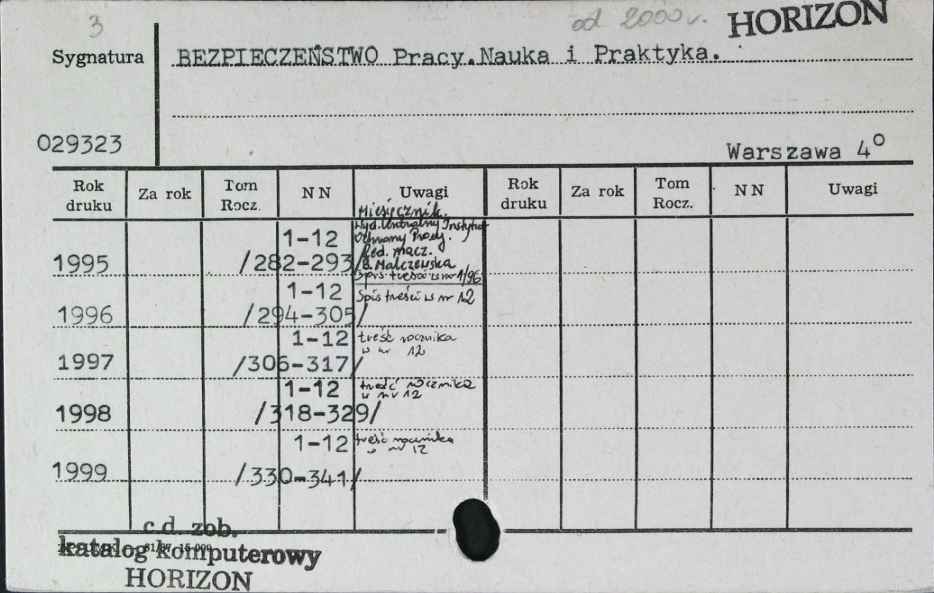 3
od 2000 r. HORIZON
Sygnatura
BEZPIECZEŃSTWO Pracy.Nauka i Praktyka.
029323
Warszawa 4°
Rok druku Za rok Tom Rocz. N N Uwagi Rok druku Za rok Tom Rocz. N N Uwagi
Miesięcznik.
Wyd. Centralny Instytut
1-12 Ochrony Pracy.
Red. nacz.
1995 /282-293/ B. Malczewska
Spis treści w nr 1/96
1-12 Spis treści w nr 12
1996 /294-305/
1-12 treść rocznika
w nr 12
1997 /306-317/
1-12 treść rocznika
w nr 12
1998 /318-329/
1-12 treść rocznika
w nr 12
1999 /330-341/
c.d. zob.
katalog komputerowy
HORIZON